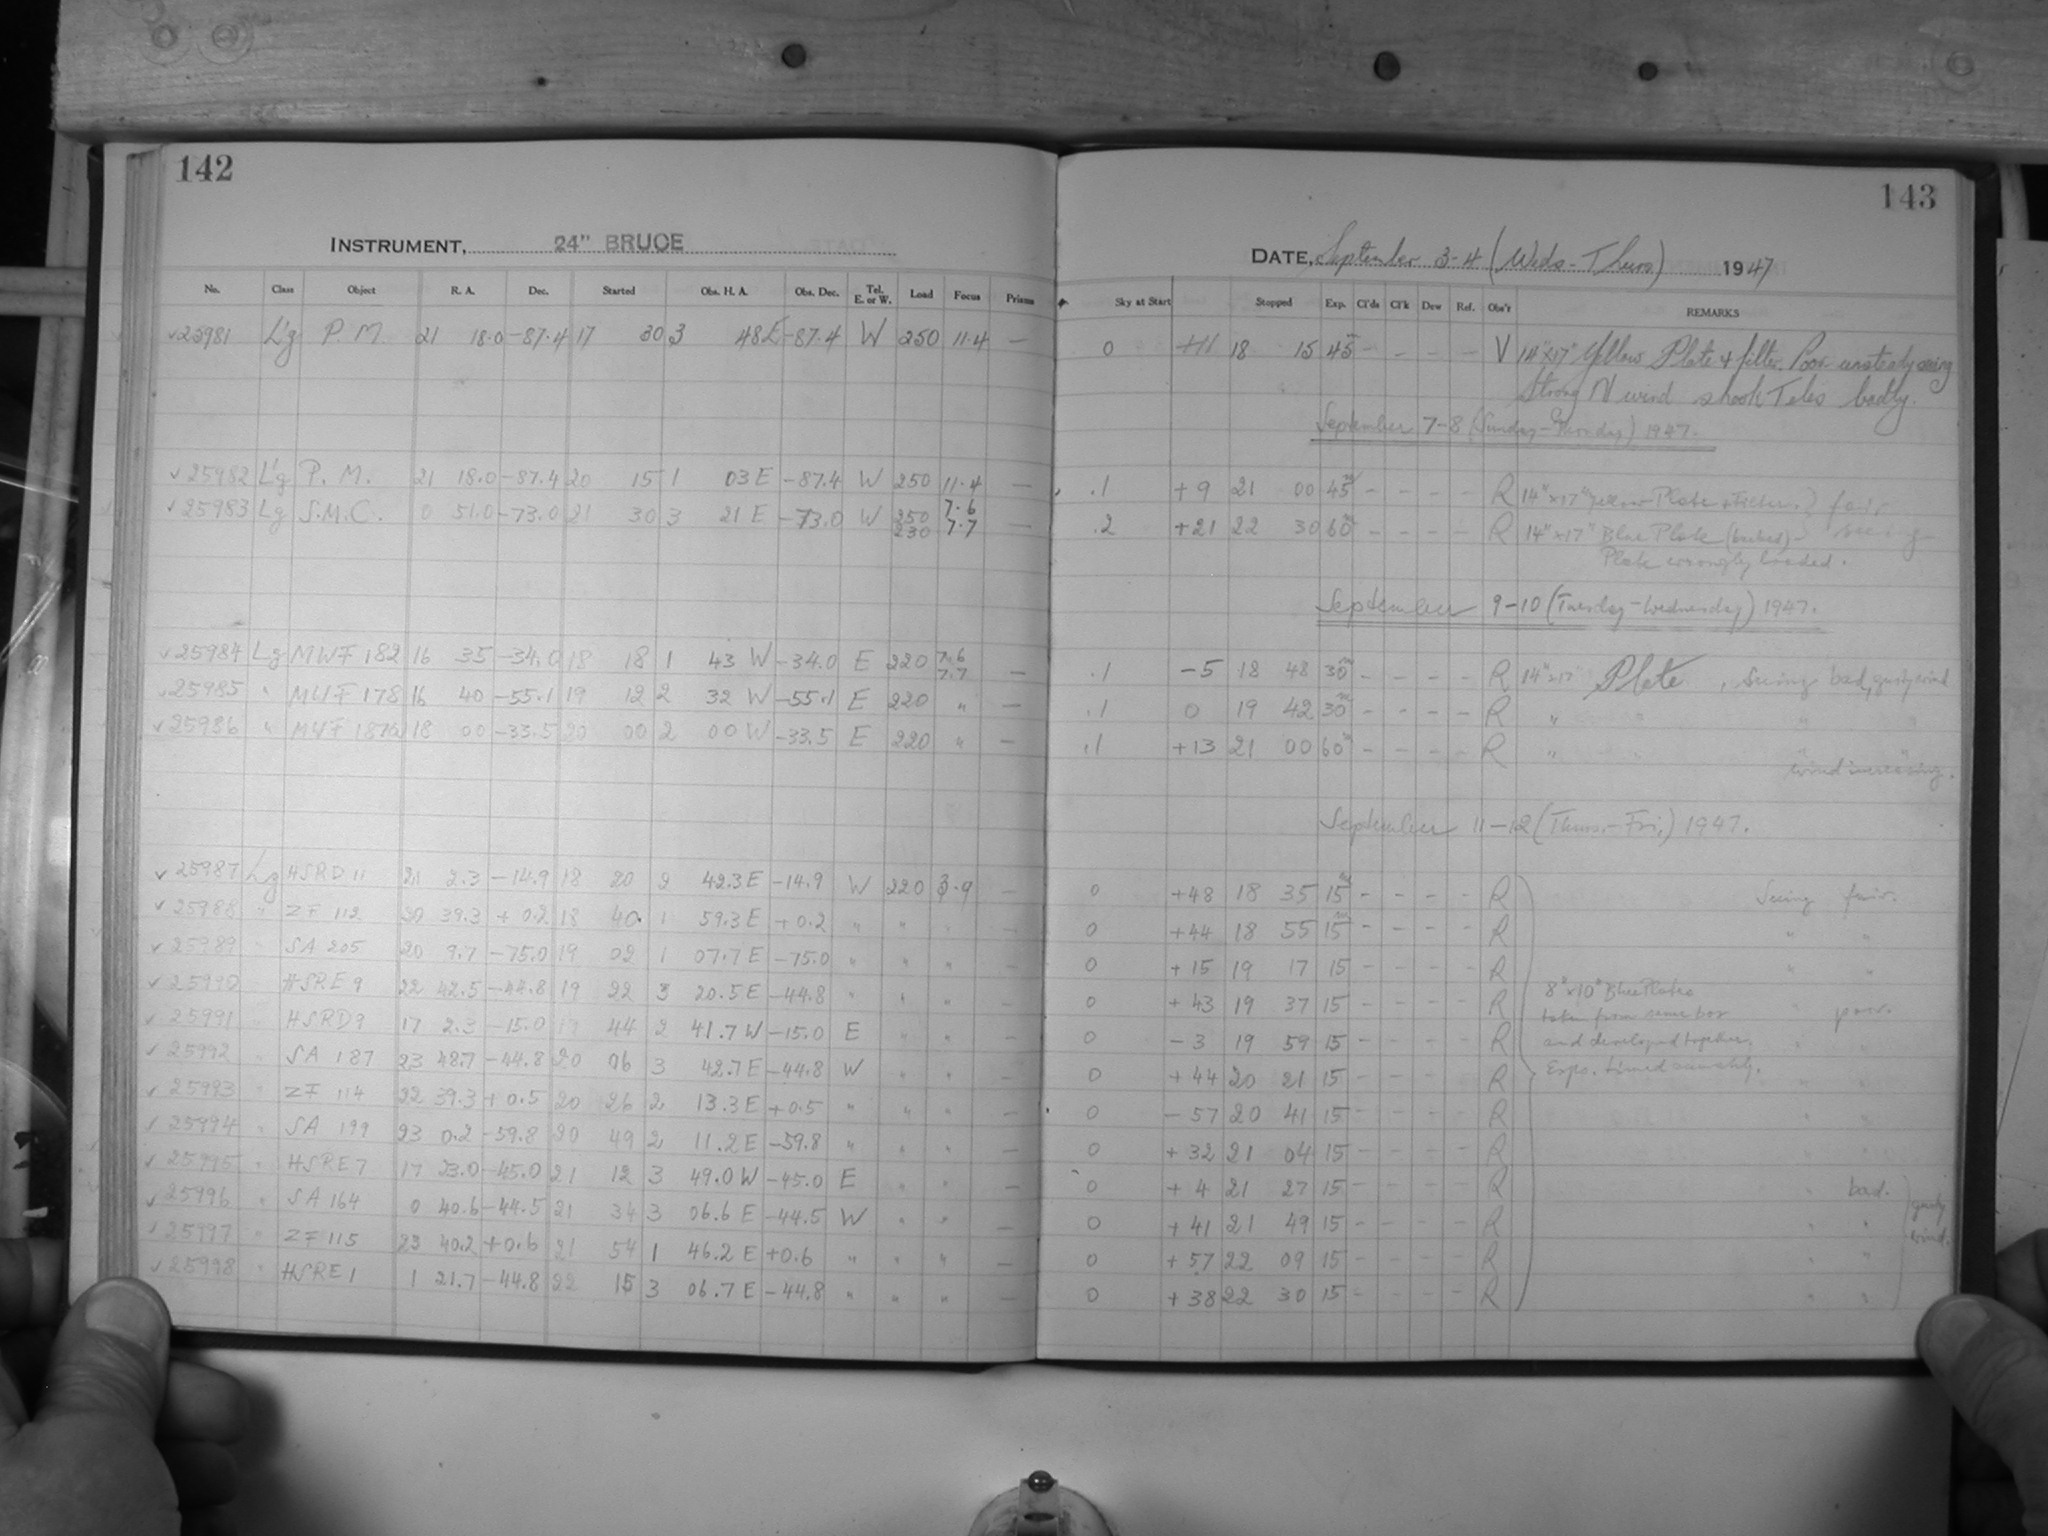 142
INSTRUMENT, 24" BRUCE
No. Class Object R. A. Dec. Started Obs. H. A. Obs. Dec. Tel. E. or W. Load Focus Prisms
✓25981 L'g P. M. 21 18.0 -87.4 17 30 3 48E -87.4 W 250 11.4 —
✓25982 L'g P. M. 21 18.0 -87.4 20 15 1 03 E -87.4 W 250 11.4 —
✓25983 Lg S.M.C. 0 51.0 -73.0 21 30 3 21 E -73.0 W 250 7.6 —
230 7.7
✓25984 Lg MWF 182 16 35 -34.0 18 18 1 43 W -34.0 E 220 7.6 —
7.7
✓25985 " MWF 178 16 40 -55.1 19 12 2 32 W -55.1 E 220 " —
✓25986 " MWF 187a 18 00 -33.5 20 00 2 00 W -33.5 E 220 " —
✓25987 Lg HSRD 11 21 2.3 -14.9 18 20 2 42.3 E -14.9 W 220 —
✓25988 " ZF 112 20 39.3 +0.2 18 40 1 59.3 E +0.2 " " " —
✓25989 " SA 205 20 9.7 -75.0 19 02 1 07.7 E -75.0 " " " —
✓25990 " HSRE 9 22 42.5 -44.8 19 22 3 20.5 E -44.8 " " " —
✓25991 " HSRD 9 17 2.3 -15.0 19 44 2 41.7 W -15.0 E " " —
✓25992 " SA 187 23 48.7 -44.8 20 06 3 42.7 E -44.8 W " " —
✓25993 " ZF 114 22 39.3 +0.5 20 26 2 13.3 E +0.5 " " " —
✓25994 " SA 199 23 0.2 -59.8 20 49 2 11.2 E -59.8 " " " —
✓25995 " HSRE 7 17 23.0 -45.0 21 12 3 49.0 W -45.0 E " " —
✓25996 " SA 164 0 40.6 -44.5 21 34 3 06.6 E -44.5 W " " —
✓25997 " ZF 115 23 40.2 +0.6 21 54 1 46.2 E +0.6 " " " —
✓25998 " HSRE 1 1 21.7 -44.8 22 15 3 06.7 E -44.8 " " " —
143
DATE, September 3-4 (Weds-Thurs) 1947
Sky at Start Stopped Exp. Cl'ds Cl'k Dew Ref. Obs'r REMARKS
0 +11 18 15 45m - - - - V 14"x17" Yellow Plate & filter. Poor unsteady seeing
Strong N wind shook Teles badly.
September 7-8 (Sunday-Monday) 1947.
.1 +9 21 00 45m - - - - R 14"x17" Yellow Plate + Filter. } fair
.2 +21 22 30 60m - - - - R 14"x17" Blue Plate (backed) - seeing
Plate wrongly loaded.
September 9-10 (Tuesday-Wednesday) 1947.
.1 -5 18 48 30m - - - - R 14"x17" Plate, Seeing bad, gusty wind
.1 0 19 42 30m - - - - R " " " "
.1 +13 21 00 60m - - - - R " " " "
wind increasing.
September 11-12 (Thurs.-Fri.) 1947.
0 +48 18 35 15m - - - - R Seeing fair.
0 +44 18 55 15m - - - - R " "
0 +15 19 17 15 - - - - R " "
0 +43 19 37 15 - - - - R 8"x10" Blue Plates " poor.
taken from same box
0 -3 19 59 15 - - - - R and developed together. " "
0 +44 20 21 15 - - - - R Expo. timed accurately. " "
0 -57 20 41 15 - - - - R " "
0 +32 21 04 15 - - - - R " "
0 +4 21 27 15 - - - - R " bad. gusty
0 +41 21 49 15 - - - - R " " wind.
0 +57 22 09 15 - - - - R " "
0 +38 22 30 15 - - - - R " "